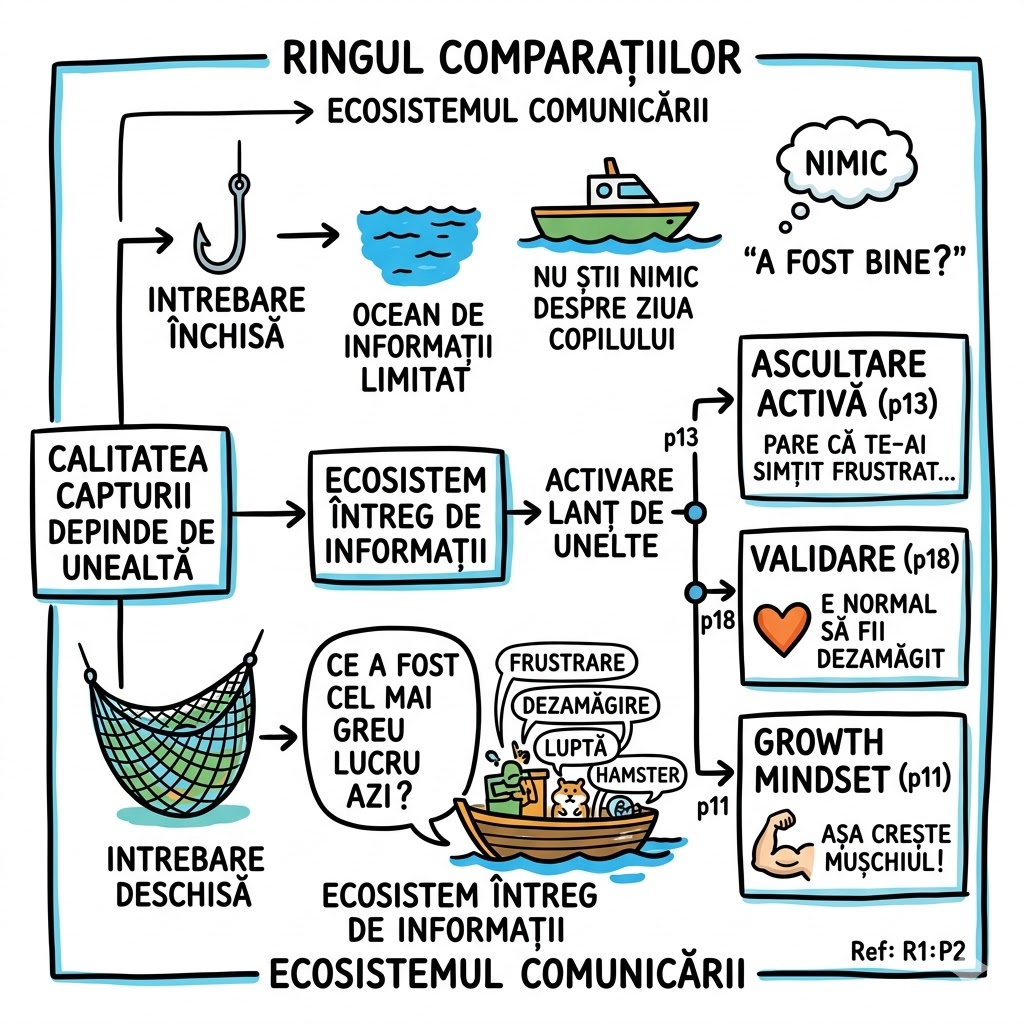 RINGUL COMPARAȚIILOR
ECOSISTEMUL COMUNICĂRII
NIMIC
"A FOST BINE?"
INTREBARE
ÎNCHISĂ
OCEAN DE
INFORMAȚII
LIMITAT
NU ȘTII NIMIC
DESPRE ZIUA
COPILULUI
CALITATEA
CAPTURII
DEPINDE DE
UNEALTĂ
ECOSISTEM
ÎNTREG DE
INFORMAȚII
ACTIVARE
LANȚ DE
UNELTE
p13
ASCULTARE
ACTIVĂ (p13)
PARE CĂ TE-AI
SIMȚIT FRUSTRAT...
p18
VALIDARE (p18)
E NORMAL
SĂ FII
DEZAMĂGIT
p11
GROWTH
MINDSET (p11)
AȘA CREȘTE
MUȘCHIUL!
INTREBARE
DESCHISĂ
CE A FOST
CEL MAI
GREU
LUCRU
AZI?
FRUSTRARE
DEZAMĂGIRE
LUPTĂ
HAMSTER
ECOSISTEM ÎNTREG
DE INFORMAȚII
Ref: R1:P2
ECOSISTEMUL COMUNICĂRII